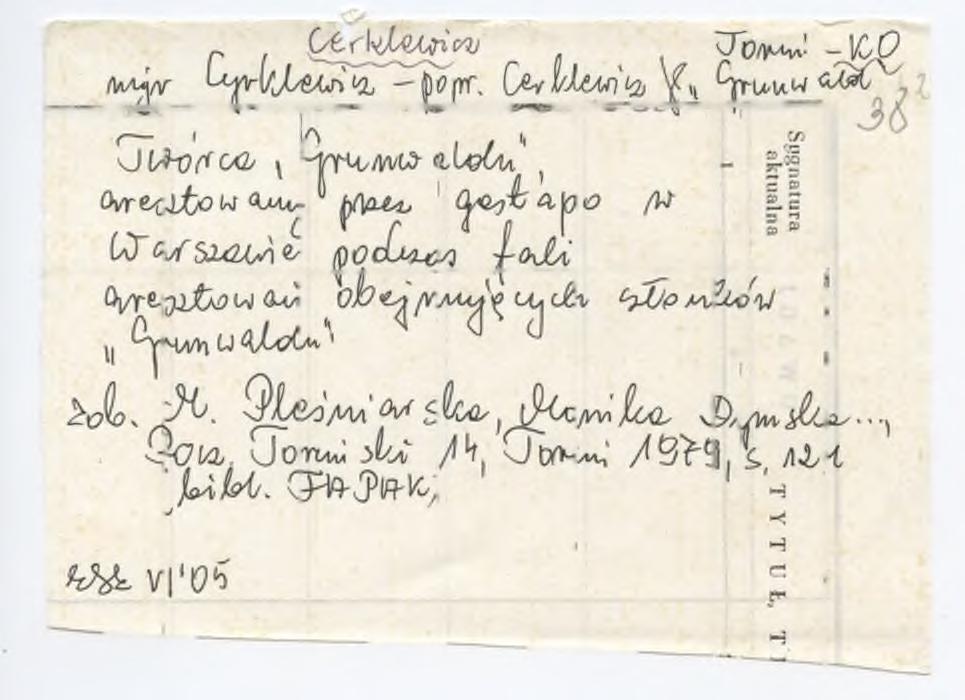 Cerklewicz
Toruń - KO
mjr Cyrklewicz - popr. Cerklewicz „Grunwald
38
Twórca „Grunwaldu",
aresztowany przez gestapo w
Warszawie podczas fali
aresztowań obejmujących członków
„Grunwaldu"
zob. M. Pleśniarska, Monika Dymska...,
Rocz. Toruński 14, Toruń 1979, s. 121
bibl. FAPAK,
VI'05
Sygnatura
aktualna
TYTUŁ, T